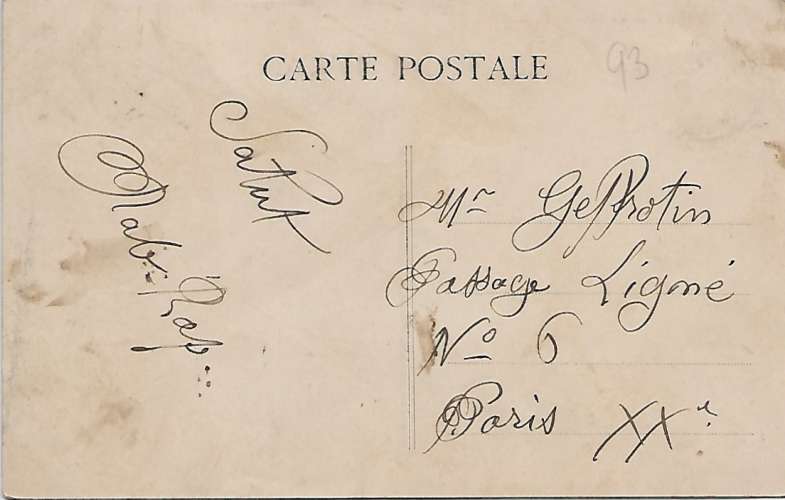 CARTE POSTALE
93
Salut
Nab. Rap...
Mr Geffrotin
Passage Ligné
No 6
Paris XXe